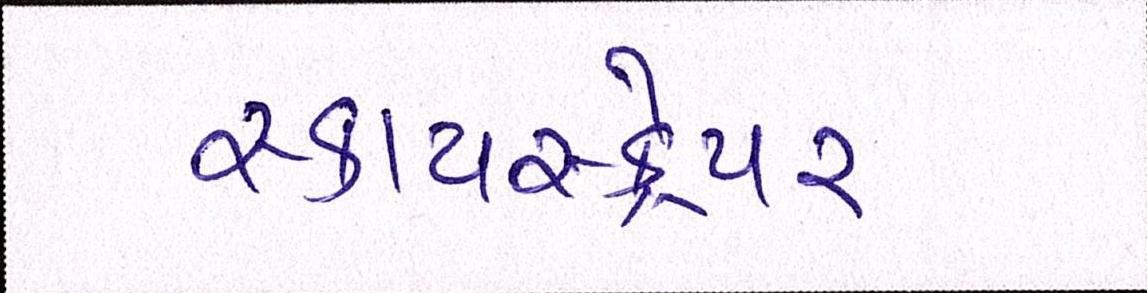 સ્કાયસ્ક્રેપર